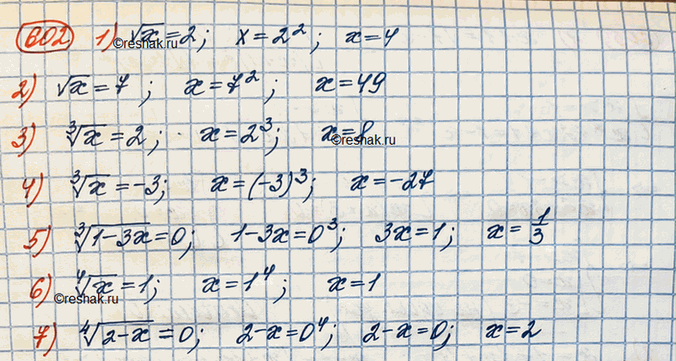 602 1) √x=2; x=2²; x=4
©reshak.ru
2) √x=7; x=7²; x=49
3) ∛x=2; x=2³; x=8
©reshak.ru
4) ∛x=-3; x=(-3)³; x=-27
5) ∛(1-3x)=0; 1-3x=0³; 3x=1; x=1/3
6) ∜x=1; x=1⁴; x=1
©reshak.ru
7) ∜(2-x)=0; 2-x=0⁴; 2-x=0; x=2